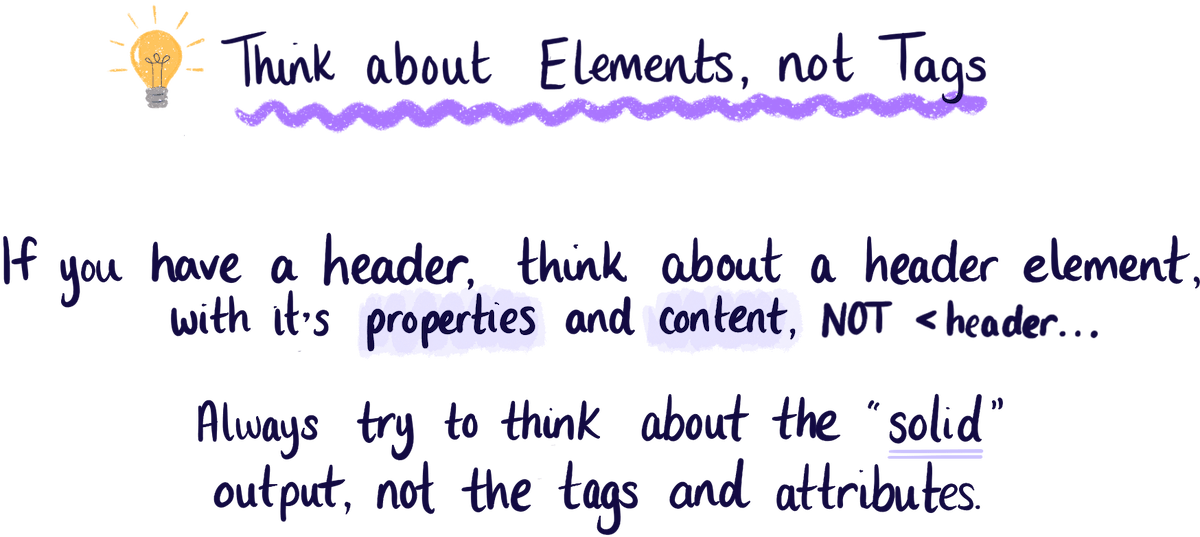 Think about Elements, not Tags
If you have a header, think about a header element,
with it's properties and content, NOT <header...
Always try to think about the "solid"
output, not the tags and attributes.